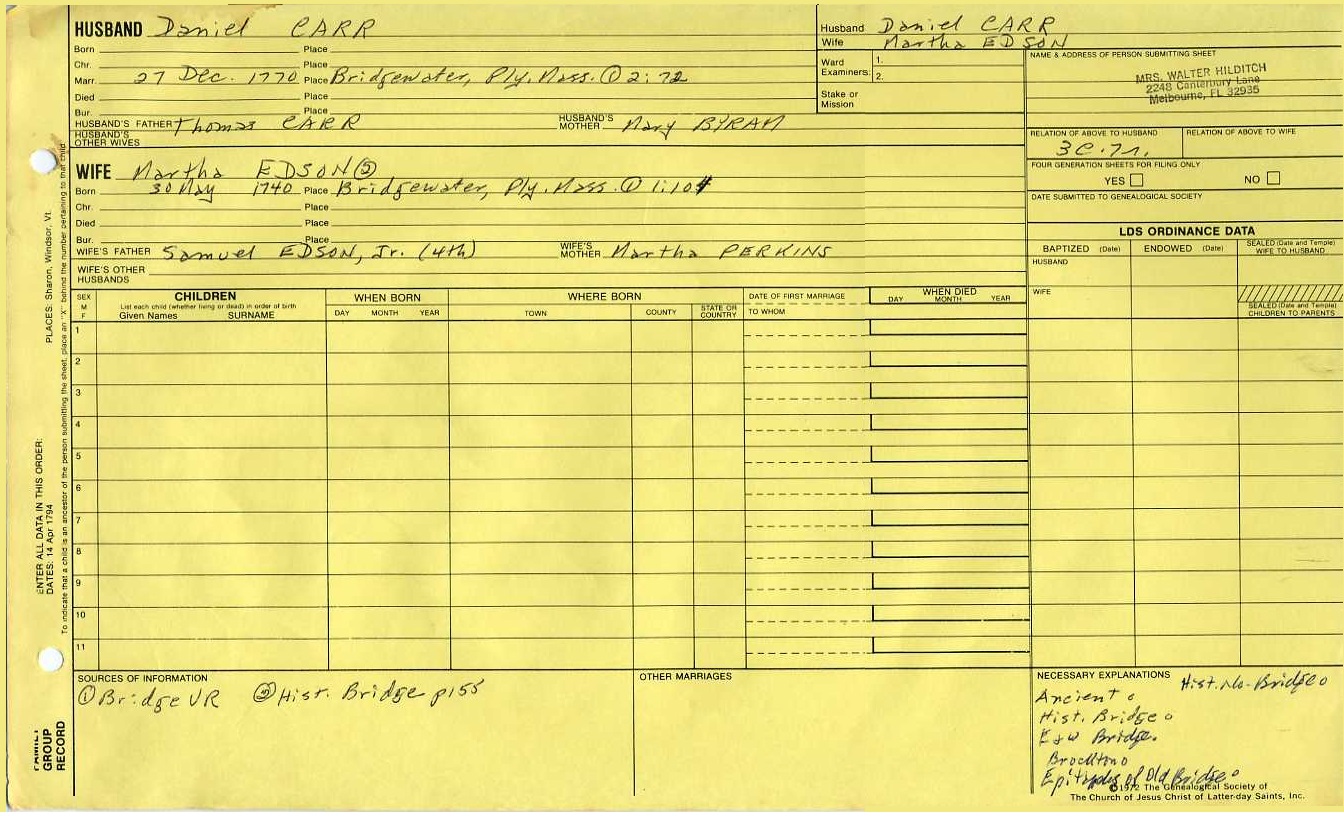 HUSBAND Daniel CARR
Born Place
Chr. Place
Marr. 27 Dec. 1770 Place Bridgewater, Ply. Mass. ① 2:72
Died Place
Bur. Place
HUSBAND'S FATHER Thomas CARR HUSBAND'S MOTHER Mary BYRAM
HUSBAND'S OTHER WIVES
WIFE Martha EDSON ②
Born 30 May 1740 Place Bridgewater, Ply. Mass. ① 1:10
Chr. Place
Died Place
Bur. Place
WIFE'S FATHER Samuel EDSON, Jr. (4th) WIFE'S MOTHER Martha PERKINS
WIFE'S OTHER HUSBANDS
Husband Daniel CARR
Wife Martha EDSON
Ward Examiners: 1.
2.
Stake or Mission
NAME & ADDRESS OF PERSON SUBMITTING SHEET
MRS. WALTER HILDITCH
2248 Canterbury Lane
Melbourne, FL 32935
RELATION OF ABOVE TO HUSBAND RELATION OF ABOVE TO WIFE
FOUR GENERATION SHEETS FOR FILING ONLY
YES NO
DATE SUBMITTED TO GENEALOGICAL SOCIETY
LDS ORDINANCE DATA
BAPTIZED (Date) ENDOWED (Date) SEALED (Date and Temple) WIFE TO HUSBAND
HUSBAND
WIFE
SEALED (Date and Temple) CHILDREN TO PARENTS
SEX M F
CHILDREN
List each child (whether living or dead) in order of birth
Given Names SURNAME
WHEN BORN
DAY MONTH YEAR
WHERE BORN
TOWN COUNTY STATE OR COUNTRY
DATE OF FIRST MARRIAGE
TO WHOM
WHEN DIED
DAY MONTH YEAR
1
2
3
4
5
6
7
8
9
10
11
SOURCES OF INFORMATION
① Bridge VR ② Hist. Bridge p155
OTHER MARRIAGES
NECESSARY EXPLANATIONS
Hist. No. Bridge o
Ancient o
Hist. Bridge o
E & W Bridge.
Brockton o
Epitaphs of Old Bridge o
©1972 The Genealogical Society of
The Church of Jesus Christ of Latter-day Saints, Inc.
PLACES: Sharon, Windsor, Vt.
To indicate that a child is an ancestor of the person submitting the sheet, place an "X" behind the number pertaining to that child
ENTER ALL DATA IN THIS ORDER:
DATES: 14 Apr 1794
FAMILY GROUP RECORD